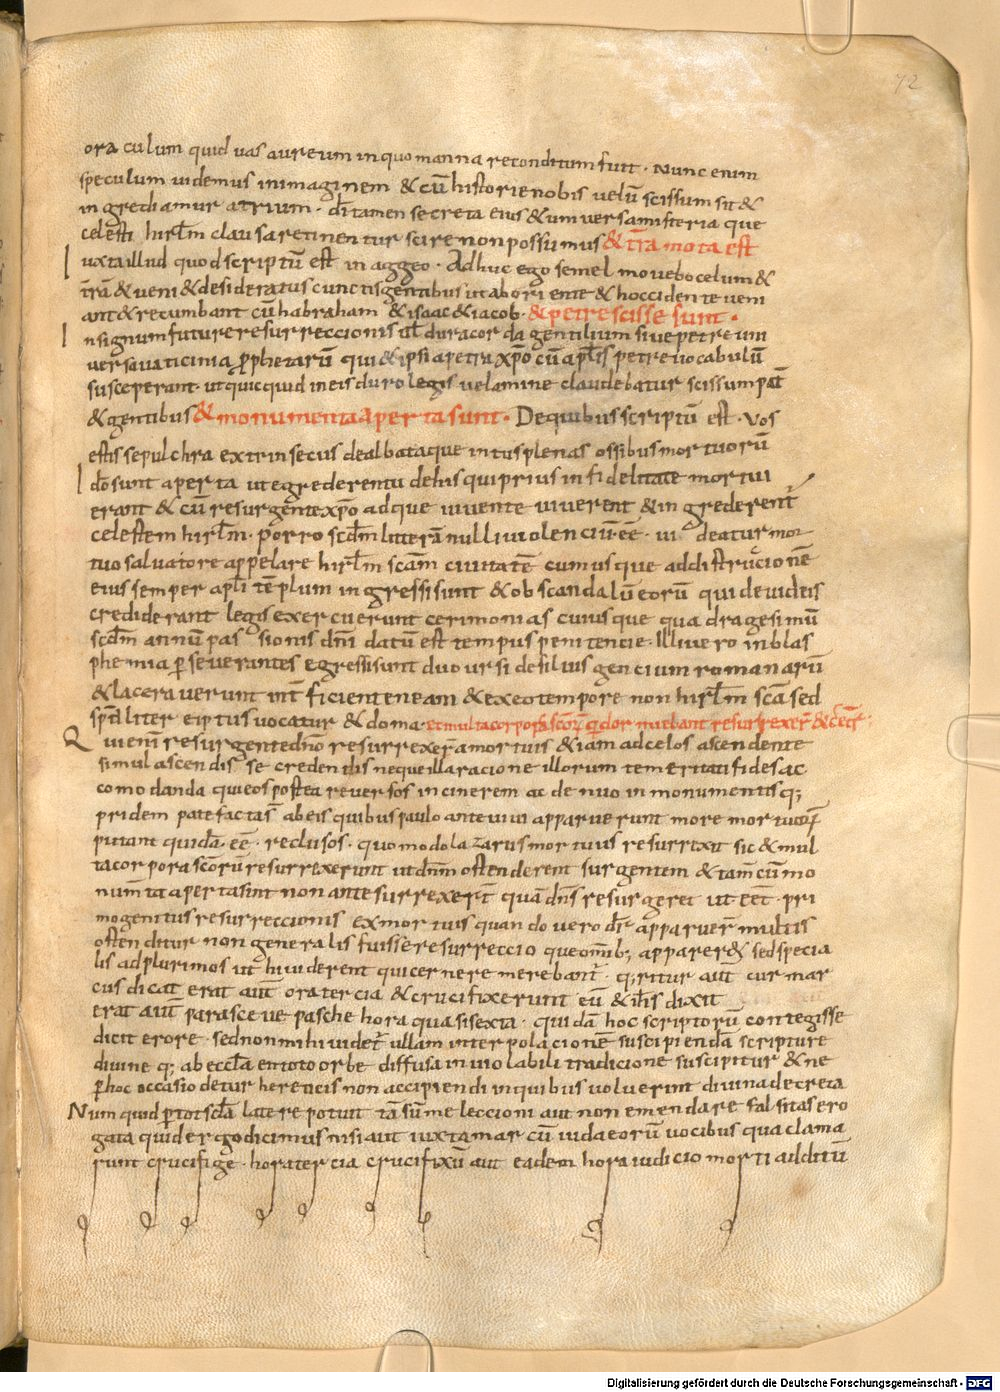 72
ora culum quid vas aureum in quo manna reconditum fuit · Nunc enim
speculum videmus in imaginem & cū historie nobis velū scissum sit &
in grediamur atrium · dī tamen secreta eius & universa misteria que
celesti hirłm clausa retinentur scire non possumus & tr̄a mota est
Iuxta illud quod scriptū est in aggeo · Adhuc ego semel movebo celum &
tr̄ā & veni & desideratus cunctis gentibus ut ab oriente & hoccidente veni
ant & recumbant cū habraham & isaac & iacob · & petre scisse sunt ·
In signum future resurreccionis ut dura corda gentilium sive petre uni
versa vaticinia ꝓphetarū qui & ipsi a petra xp̄o cū apłis petre vocabulū
susceperant · ut quicquid in eis duro legis velamine claudebatur scissum pat̄
& gentibus & monumenta aperta sunt · De quibus scriptū est · vos
estis sepulchra extrinsecus dealbata que intus plena s ossibus mortuorū
Ido sunt aperta ut egrederentu de his qui prius in fidelitate mortui
erant & cū resurgente xp̄o adque vivente viverent & in grederent
celestem hirłm · porro scd̄m litterā nulli violenciū ēē · vi deatur mor
tuo salvatore appelare hirłm scām civitatē cum usque ad distruccionē
eius semper apłi tēplum ingressi sunt & ob scandalū eorū qui de iudeis
crediderant legis exercuerunt cerimonias cuius que quadragesimū
scd̄m annū pas sionis dn̄i datū est tempus penitencie · Illi vero in blas
phemia ꝑseverantes egressi sunt duo ursi de silvis gencium romanarū
& laceraverunt int̄ficientene am & ex eo tempore non hirłm scā sed
spd̄liter eiptus vocatur & doma · et multa corpora sc̄oꝝ q dormiebant resurrexer̄ & cet̄r
Qui enī resurgente dn̄o resurrexer̄ a mortuis & iam ad celos ascendente
simul ascendis se credendi s neque illa racione illorum temeritati fides ac
comodanda qui eos postea reversos in cinerem ac denuo in monumentisq;
pridem patefactas ab eis quibus paulo ante vivi apparuerunt more mortuoꝝ
putant quidā · ēē · reclusos · quomodo lazarus mortuus resurrexit sic & mul
ta corpora sc̄orū resurrexerunt ut dn̄m ostenderent surgentem & tam̄ cū mo
numta aperta sint non ante surrexer̄t quā dn̄s resurgeret ut eēt · pri
mogenitus resurreccionis ex mortuis quando vero dr̄ apparuer̄ multis
ostenditur non generalis fuisse resurreccio que om̄ib; apparer& sed specia
lis ad plurimos ut hi viderent qui cernere merebant̄ · q;ritur aut̄ cur mar
cus dicat erat aut̄ ora tercia & crucifixerunt eū & ih̄s dixit
erat aut̄ parasceve pasche hora quasi sexta · quidā hoc scriptorū contegisse
dicit erore · sed non mihi videt̄ ullam interpolacionē suscipienda scripture
divine q; ab eccl̄a en toto orbe diffusa inviolabili tradicione suscipitur & ne
ꝑ hoc occasio detur hereticis non accipiendi in quibus voluerint divina decreta
Num quid ꝑ tot scl̄a latere potuit tā sūme leccioni aut non emendare falsitas ero
gata quid ergo dicimus nisi aut iuxta marcū iudaeorū vocibus qua clama
runt crucifige · hora tercia crucifixū aut eadem hora iudicio morti additū
Digitalisierung gefördert durch die Deutsche Forschungsgemeinschaft - DFG